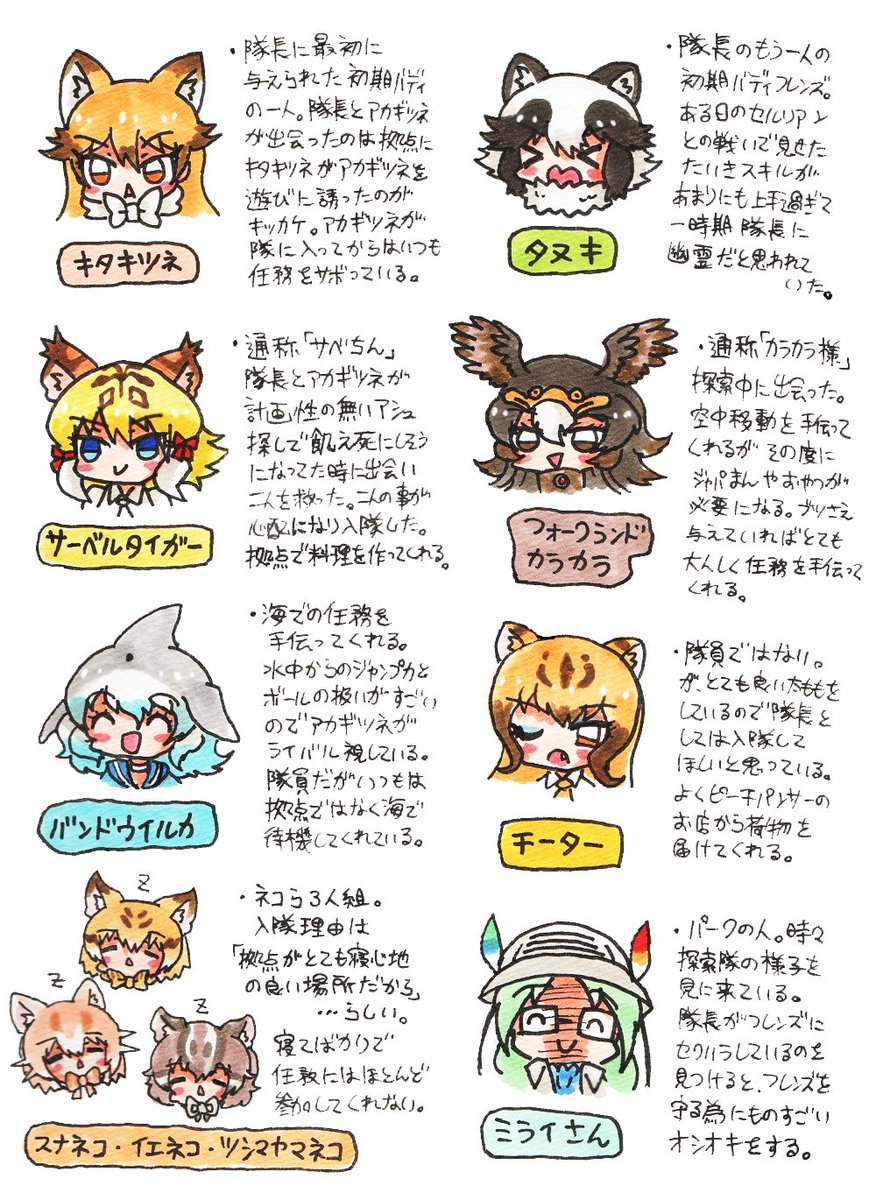 ・隊長に最初に
与えられた初期バディ
の一人。隊長とアカギツネ
が出会ったのは拠点に
キタキツネがアカギツネを
遊びに誘ったのが
キッカケ。アカギツネが
隊に入ってからはいつも
任務をサボっている。
キタキツネ
・隊長のもう一人の
初期バディフレンズ。
ある日のセルリアン
との戦いで見せた
たぬきスキルが
あまりにも上手過ぎて
一時期隊長に
幽霊だと思われて
いた。
タヌキ
・通称「サベちん」
隊長とアカギツネが
計画性の無いアシュ
探しで飢え死にしそう
になってた時に出会い
二人を救った。二人の事が
心配になり入隊した。
拠点で料理を作ってくれる。
サーベルタイガー
・通称「カラカラ様」
探索中に出会った。
空中移動を手伝って
くれるが その度に
ジャパまんやおやつが
必要になる。ブツさえ
与えていればとても
大人しく任務を手伝って
くれる。
フォークランド
カラカラ
・海での任務を
手伝ってくれる。
水中からのジャンプ力と
ボールの扱いがすごい
のでアカギツネが
ライバル視している。
隊員だがいつもは
拠点ではなく海で
待機してくれている。
バンドウイルカ
・隊員ではない。
が、とても良い太ももを
しているので隊長と
しては入隊して
ほしいと思っている。
よくピーチパンサーの
お店から荷物を
届けてくれる。
チーター
z
z
z
・ネコら3人組。
入隊理由は
「拠点がとても寝心地
の良い場所だから」
…らしい。
寝てばかりで
任務にはほとんど
参加してくれない。
スナネコ・イエネコ・ツシマヤマネコ
・パークの人。時々
探索隊の様子を
見に来ている。
隊長がフレンズに
セクハラしているのを
見つけると、フレンズを
守る為にものすごい
オシオキをする。
ミライさん